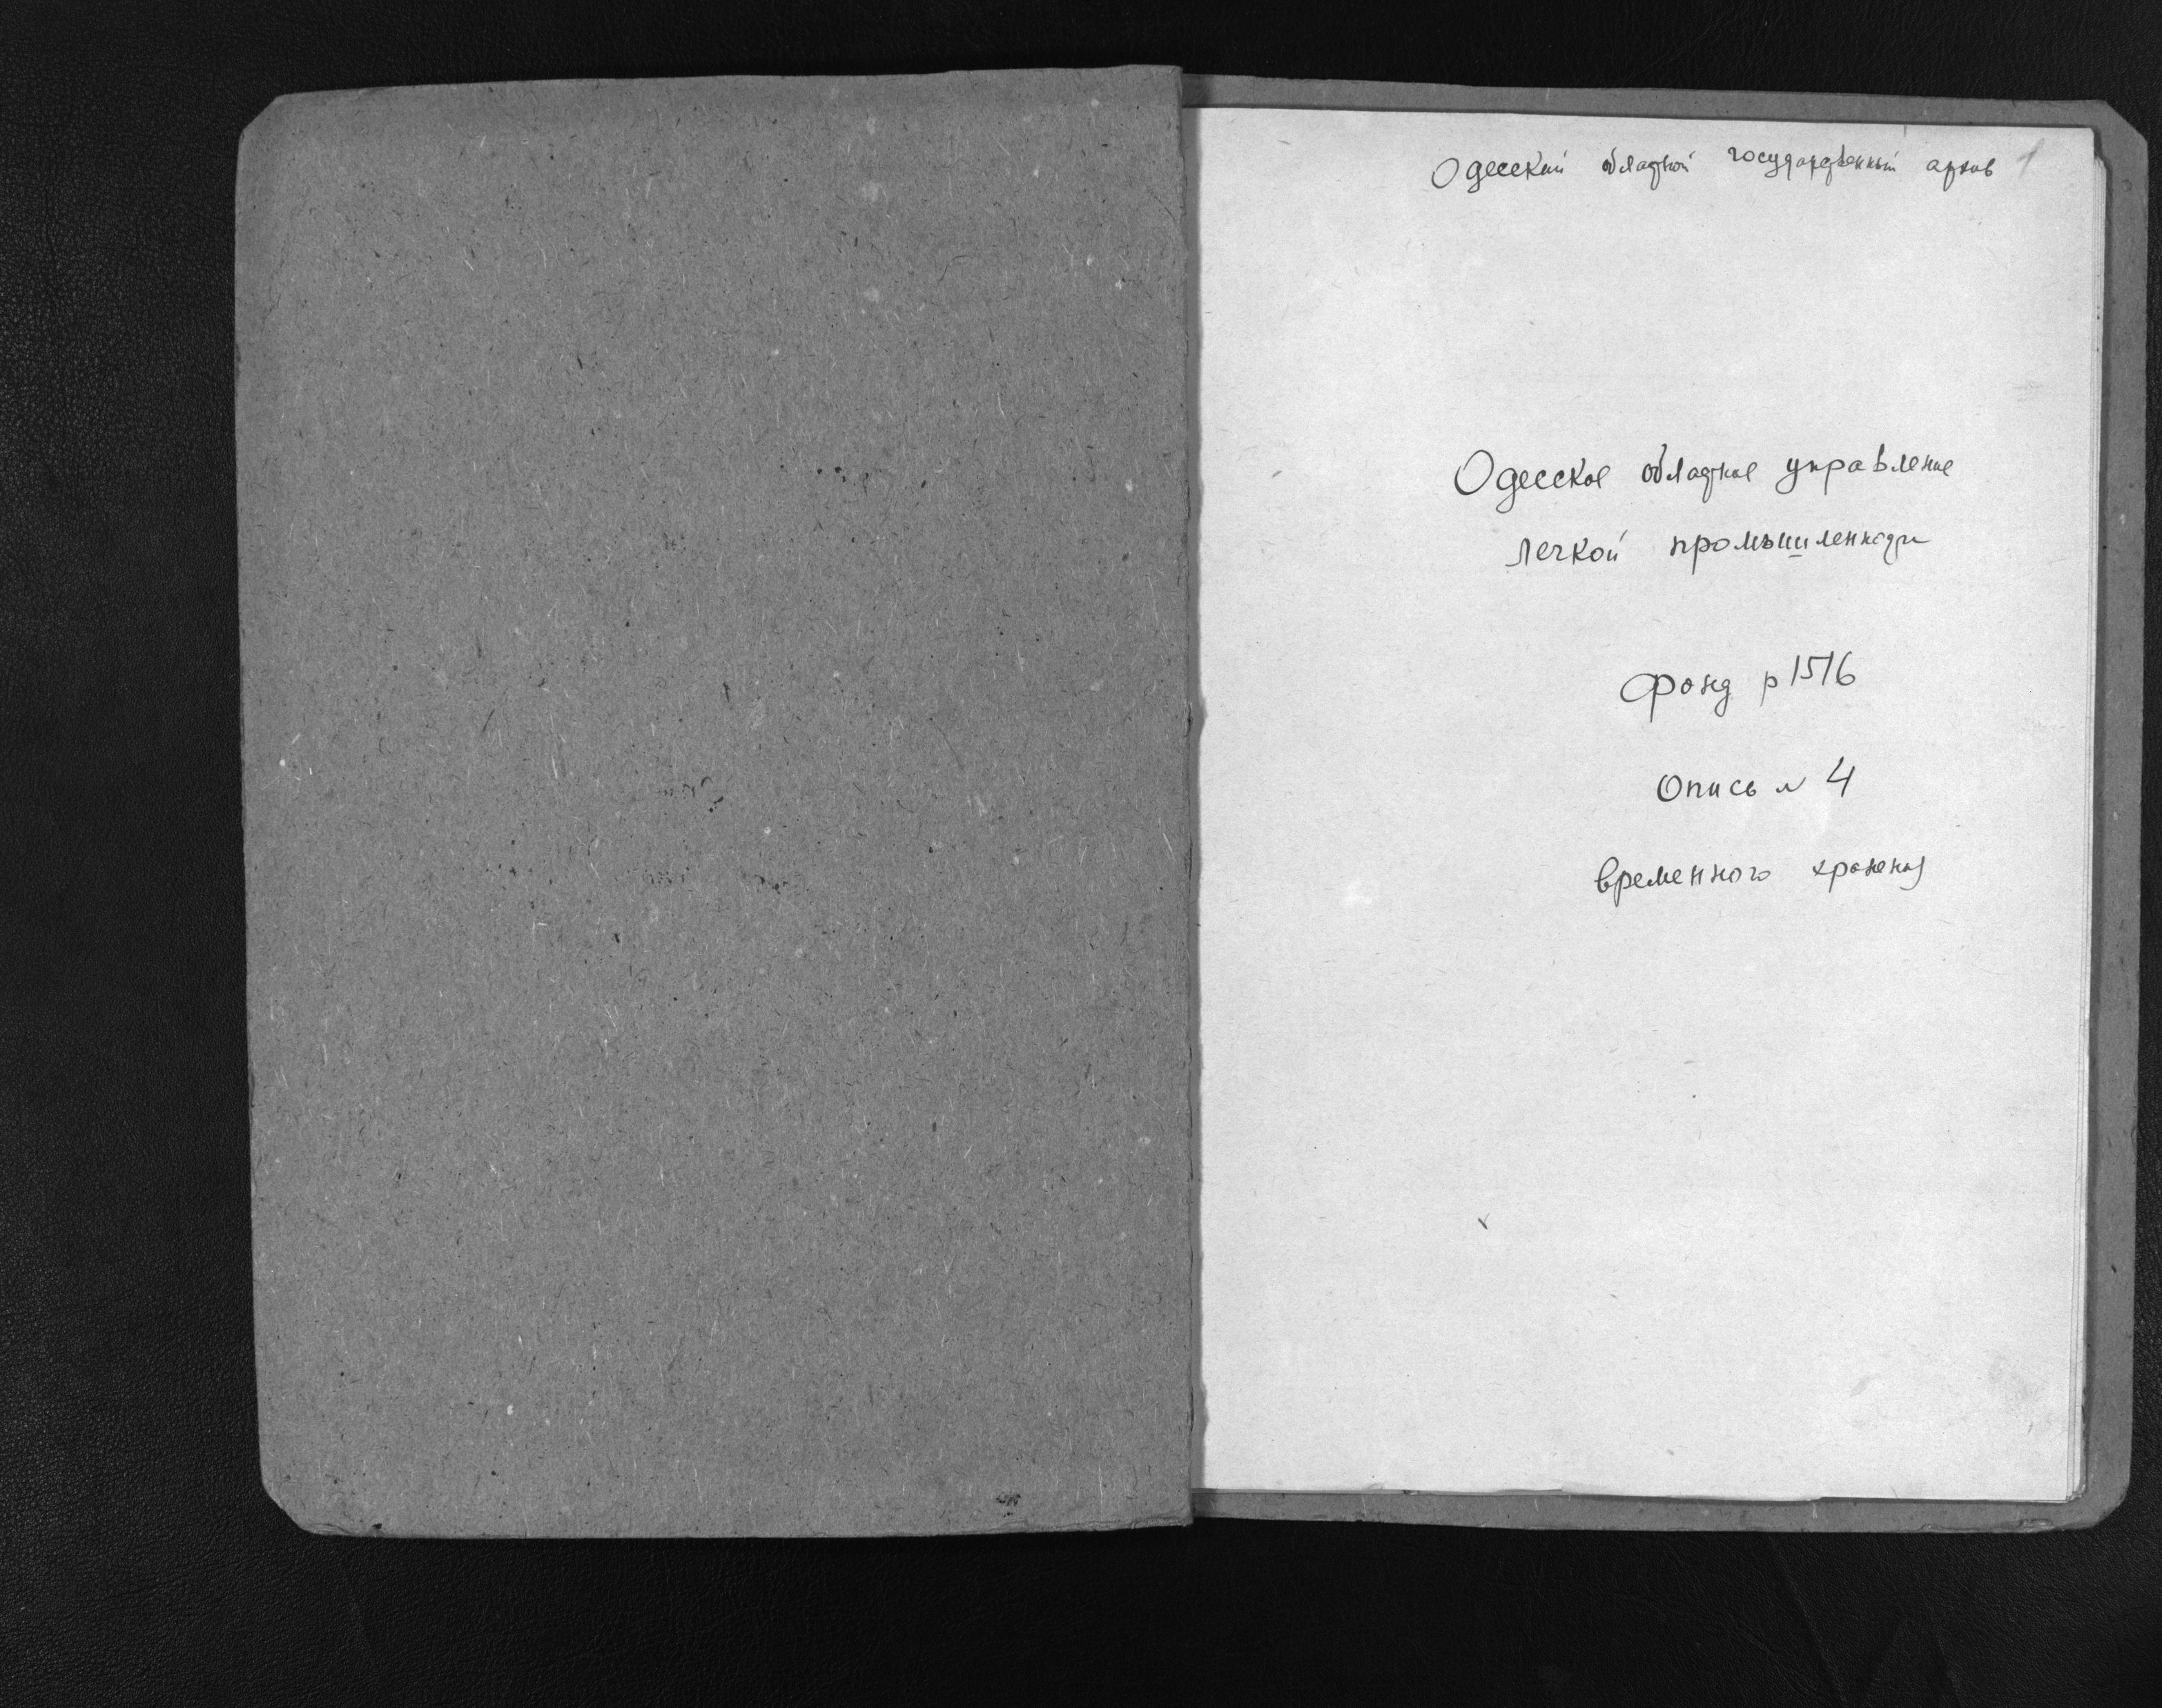 Одесский областной государственный архив 1
Одесское областное управление
легкой промышленности
Фонд р 1516
Опись № 4
временного хранения